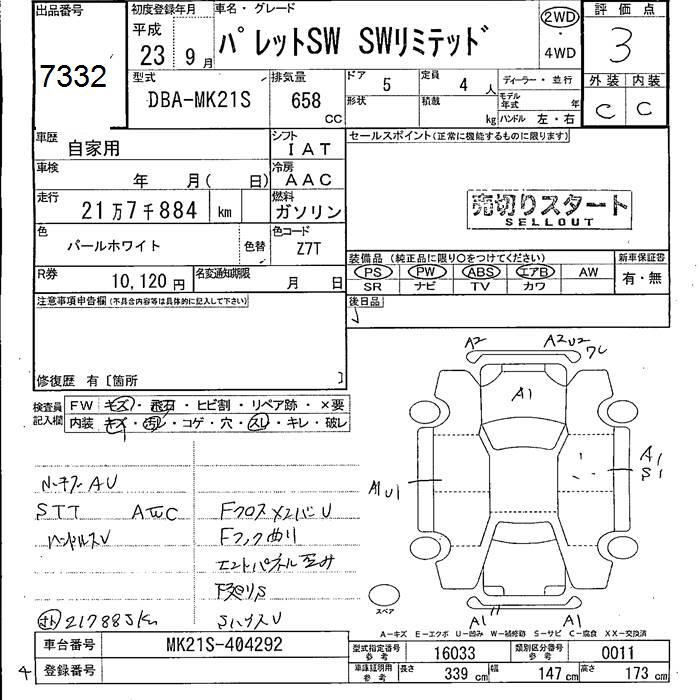 出品番号
7332
初度登録年月
平成
23 9月
車名・グレード
パレットSW SWリミテッド
2WD
・
4WD
評価点
3
外装 内装
C C
型式
DBA-MK21S
排気量
658
CC
ドア
5
定員
4人
形状
積載
kg
ディーラー・並行
モデル年式 年
ハンドル 左・右
車歴
自家用
シフト
IAT
車検
年 月( 日)
冷房
AAC
走行
21万7千884 km
燃料
ガソリン
色
パールホワイト
色替
色コード
Z7T
R券
10,120円
名変通知期限
月 日
セールスポイント(正常に機能するものに限ります)
売切りスタート
SELLOUT
装備品(純正品に限り○をつけてください)
PS PW ABS エアB AW
SR ナビ TV カワ
新車保証書
有・無
後日品
注意事項申告欄(不具合内容等は具体的に記入して下さい)
修復歴 有〔箇所 〕
検査員
記入欄
FW キズ・飛石・ヒビ割・リペア跡・×要
内装 キズ・汚れ・コゲ・穴・スレ・キレ・破レ
A2
A2U2
A1
A1U1
A1
S1
STT
ハンドルスレ
Fフック曲り
下廻りS
217885km
スペア
A1
A1
A-キズ E-エクボ U-凹み W-補修跡 S-サビ C-腐食 XX-交換済
車台番号
MK21S-404292
登録番号
4
型式指定番号
参考
16033
類別区分番号
参考
0011
車庫証明用
参考
長さ
339 cm
幅
147 cm
高さ
173 cm